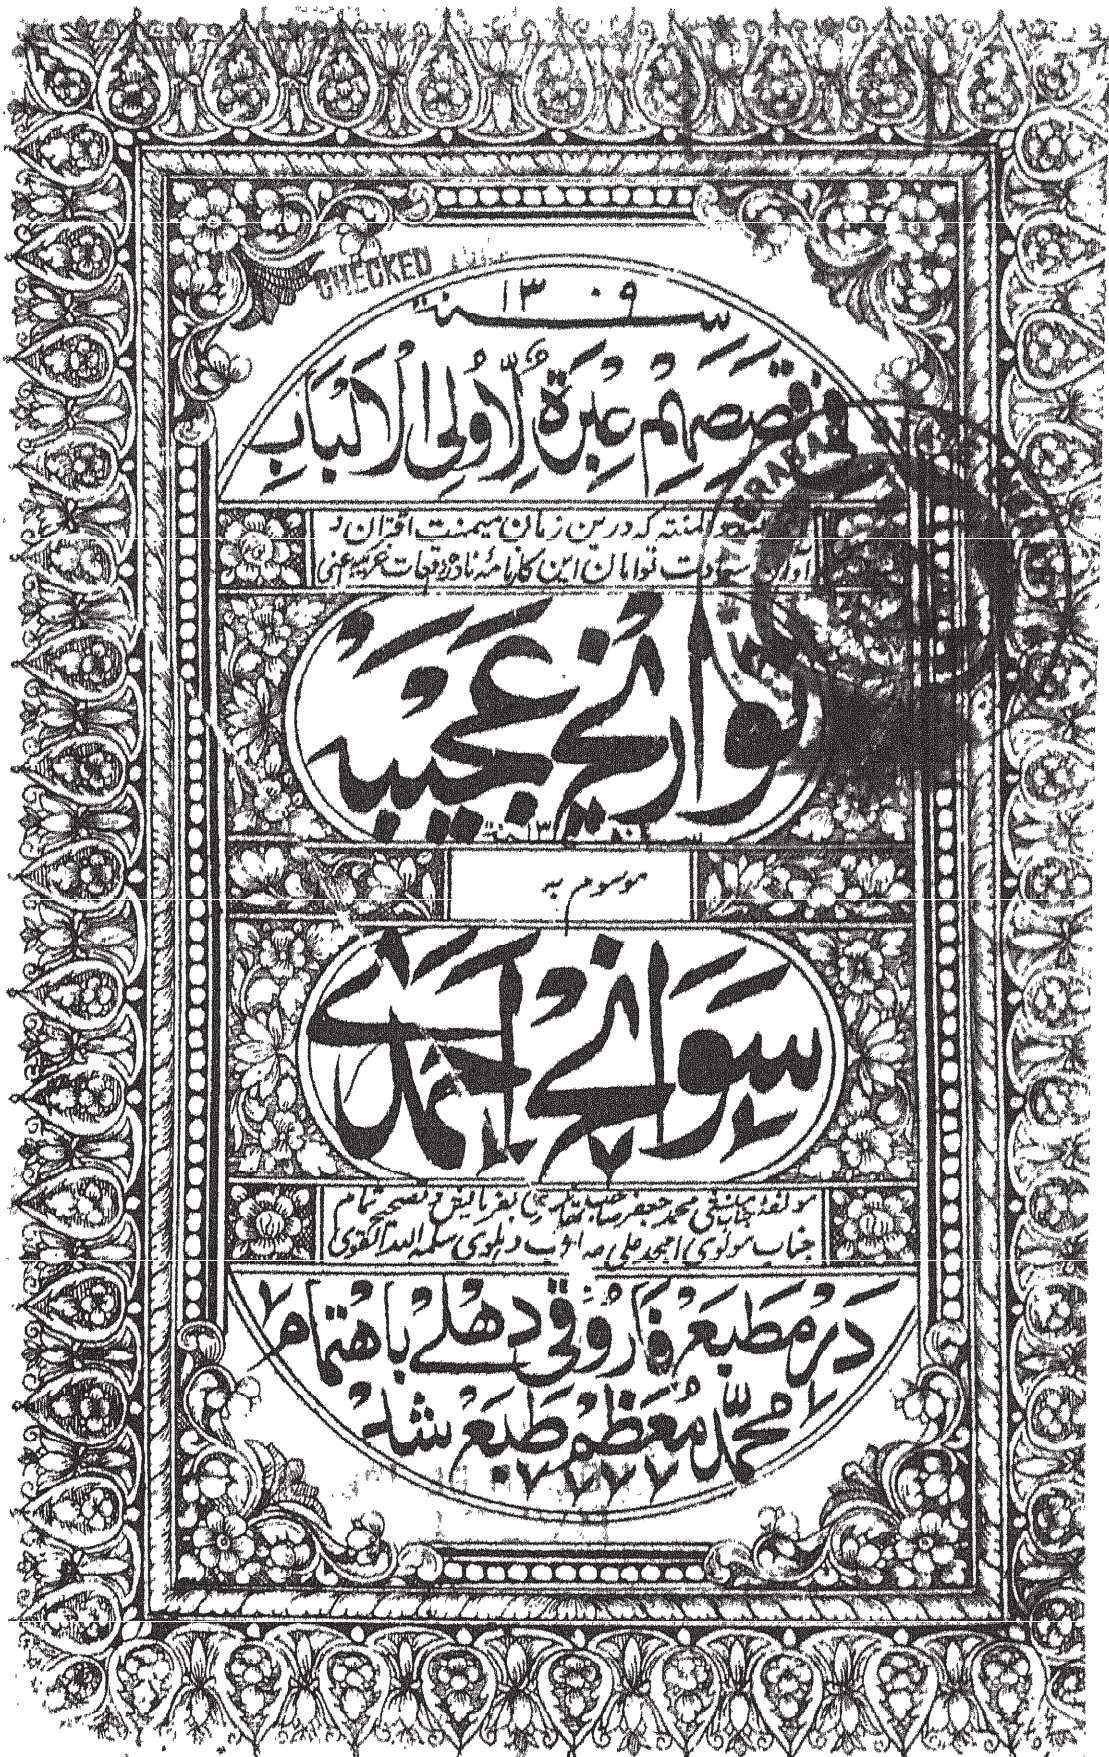 CHECKED
۱۳۰۹
سنة
فی قصصهم عِبْرَةٌ لِّاُولِی الْاَلْبَابِ
المنته که درین زمان میمنت اقتران و
آوان سعادت توامان این کارنامهٔ نادر وقعات عجیبه اعنی
تواریخ عجیبه
موسوم به
سوانح احمدی
مولفهٔ جناب منشی محمد جعفر صاحب تھانیسری بفرمایش و تصحیح تمام
جناب مولوی امجد علی صاحب دہلوی سلمه الله القوی
دَر مطبع فاروقی دهلی باهتمام
محمد معظم طبع شد